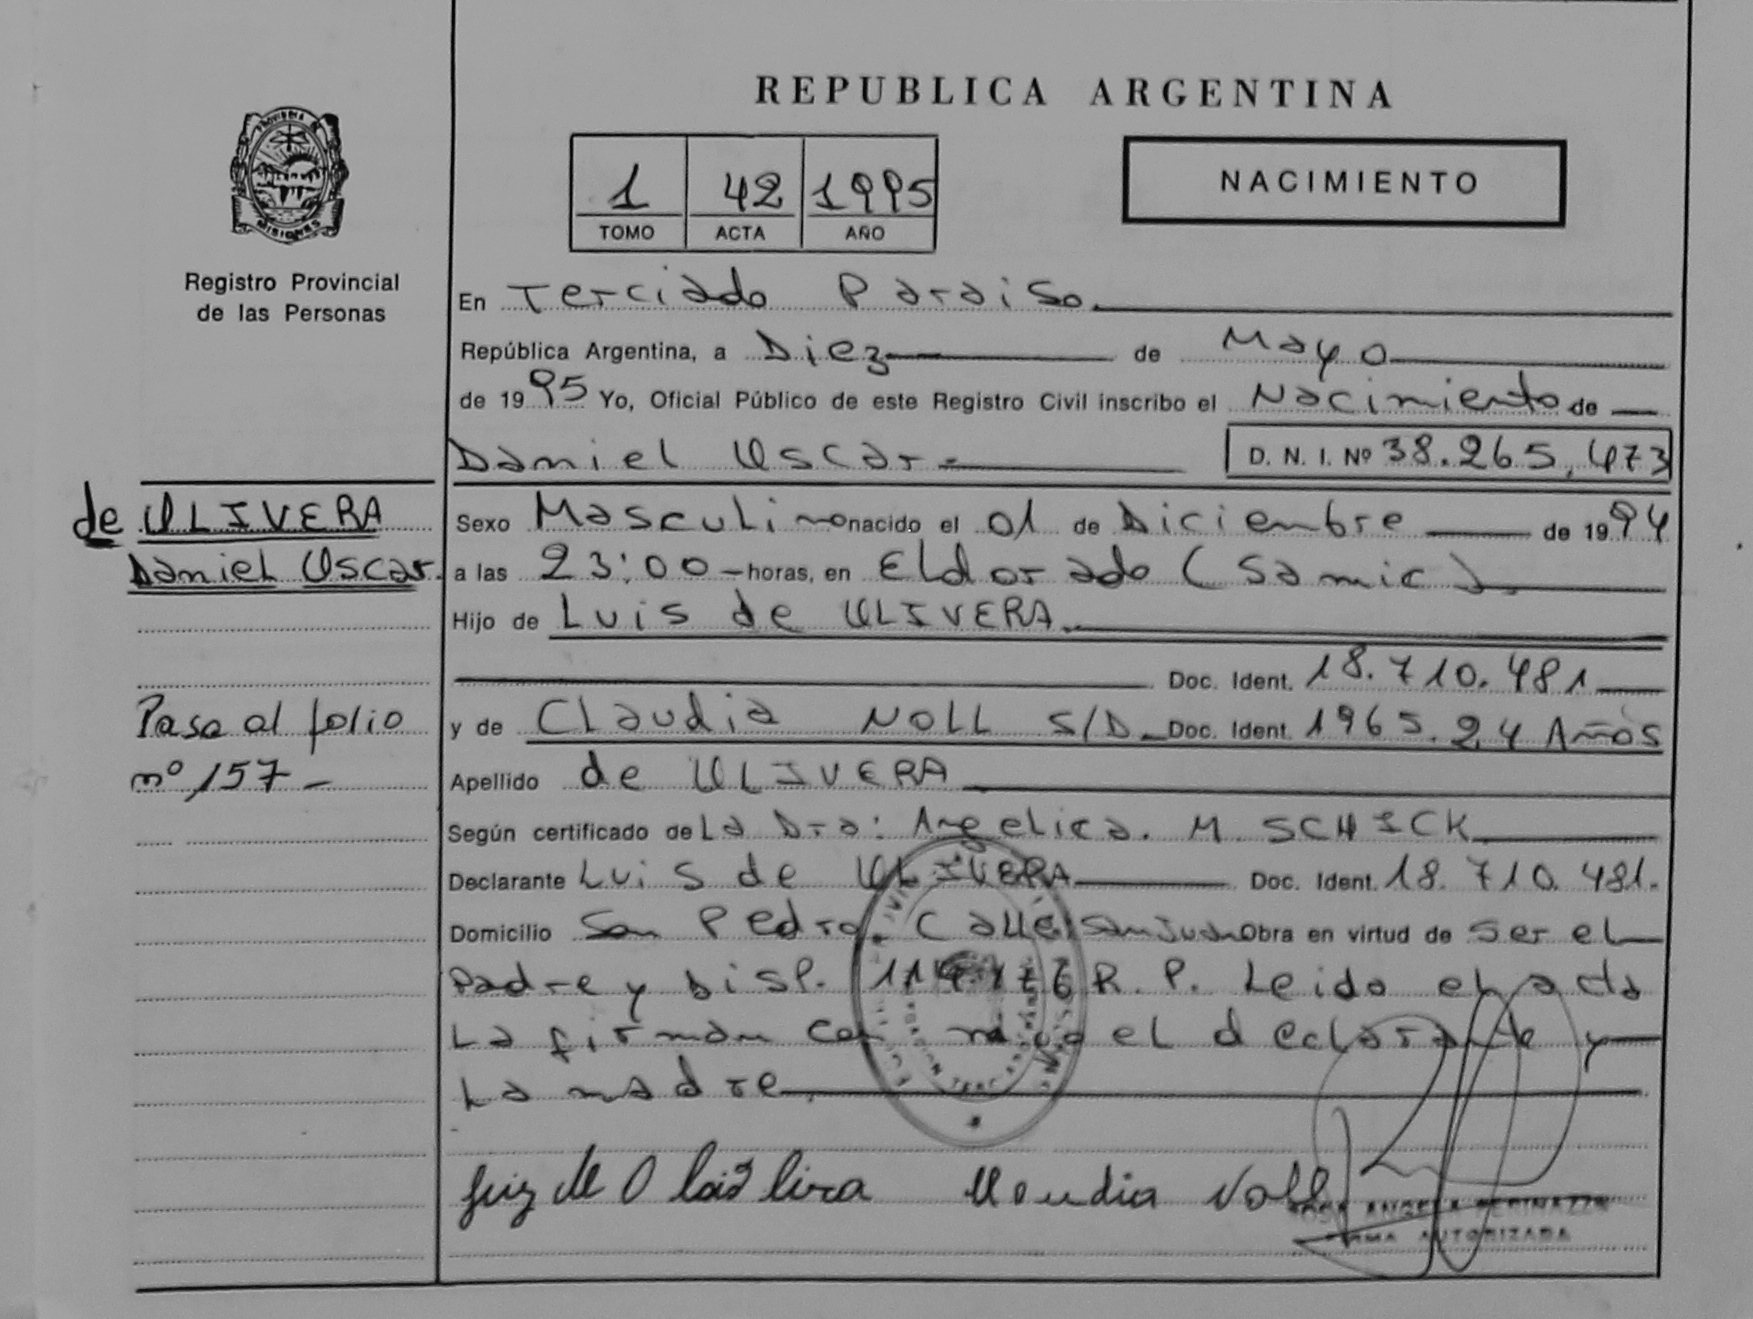 REPUBLICA ARGENTINA
PROVINCIA DE MISIONES
Registro Provincial
de las Personas
1 42 1995
TOMO ACTA AÑO
NACIMIENTO
En Terciado Paraiso.
República Argentina, a Diez de Mayo
de 1995 Yo, Oficial Público de este Registro Civil inscribo el Nacimiento de
Daniel Oscar D. N. I. Nº 38.265.473
de OLIVERA
Daniel Oscar.
Sexo Masculino nacido el 01 de Diciembre de 1994
a las 23:00 horas, en Eldorado (Samic).
Hijo de Luis de OLIVERA.
Doc. Ident. 18.710.481
Pasa al folio
nº 157 -
y de Claudia NOLL S/D. Doc. Ident. 1965. 24 Años
Apellido de OLIVERA
Según certificado de La Dra: Angelica. M. SCHICK
Declarante Luis de OLIVERA Doc. Ident. 18.710.481.
Domicilio San Pedro. Calle San Juan Obra en virtud de ser el
Padre y Disp. R. P. Leido el acta
La firman con migo el declarante y
La madre.
Noll
FIRMA AUTORIZADA